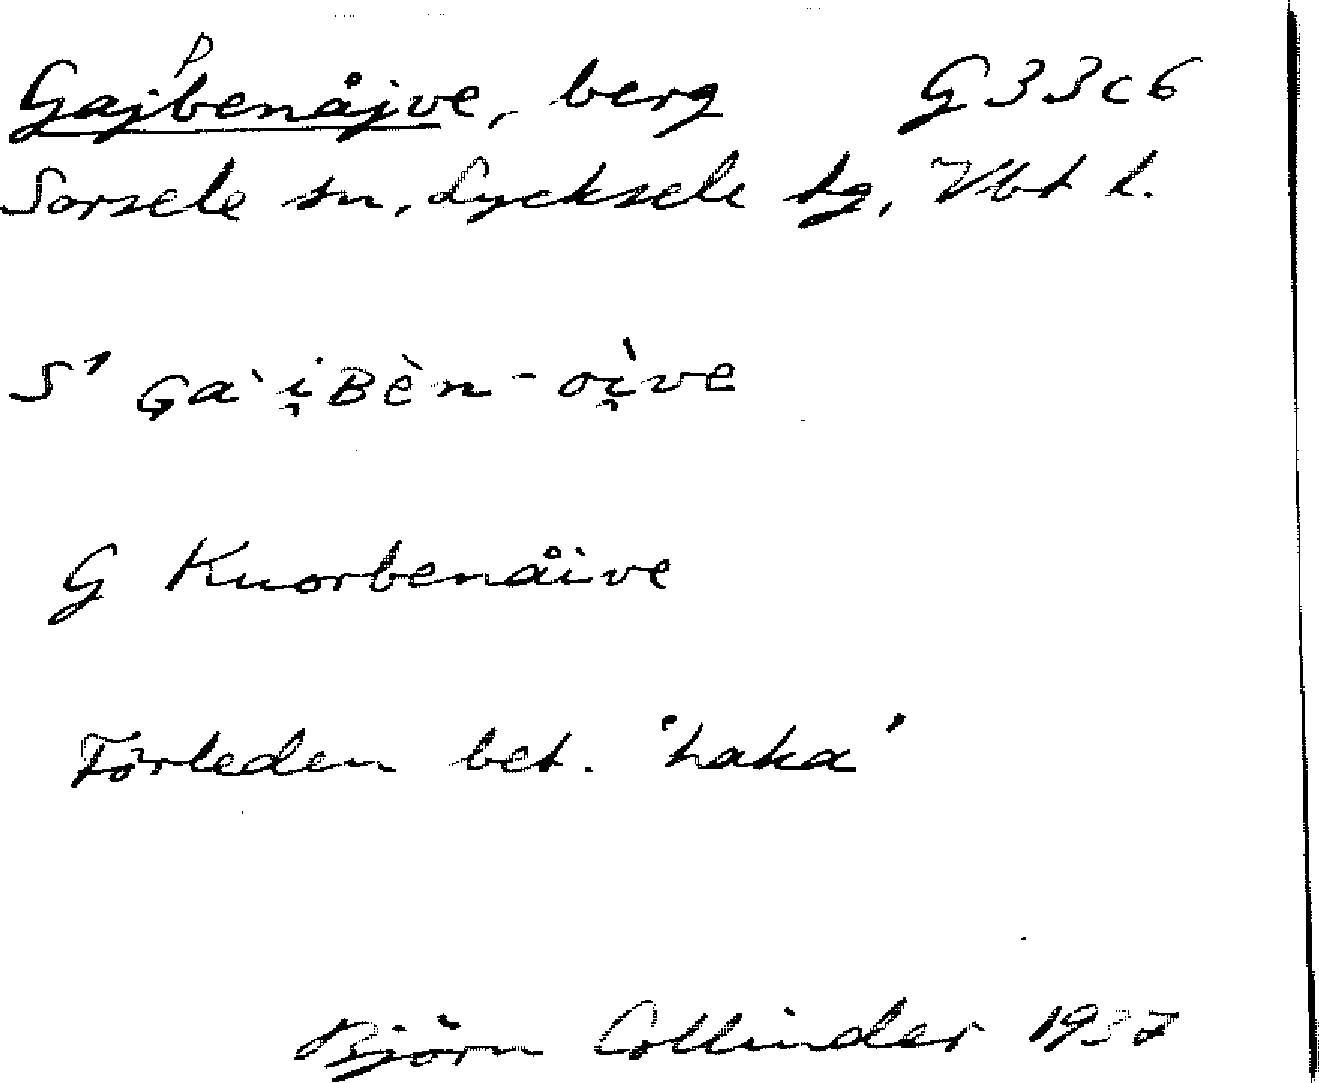 p
Gajbenåjve, berg G33c6
Sorsele sn, Lycksele tg, Vbt l.
S' Ga`i̯Bèn-òi̯ve
G Knorbenåive
Förleden bet. 'haka'
Björn Collinder 1937